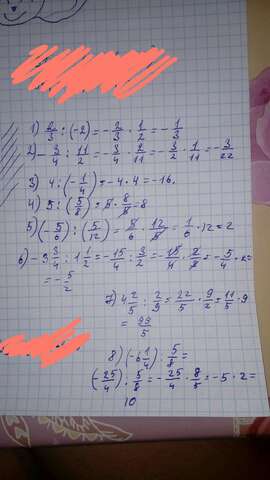 1) 2/3 : (-2) = -2/3 · 1/2 = -1/3
2) -3/4 : 11/2 = -3/4 · 2/11 = -3/2 · 1/11 = -3/22
3) 4 : (-1/4) = -4 · 4 = -16.
4) 5 : (5/8) = 5 · 8/5 = 8
5) (-5/6) : (5/12) = 5/6 · 12/5 = 1/6 · 12 = 2
6) -3 3/4 : 1 1/2 = -15/4 : 3/2 = -15/4 · 2/3 = -5/4 · 2 =
= -5/2
7) 4 2/5 : 2/9 = 22/5 · 9/2 = 11/5 · 9
= 99/5
8) (-6 1/4) : 5/8 =
(-25/4) : 5/8 = -25/4 · 8/5 = -5 · 2 =
10